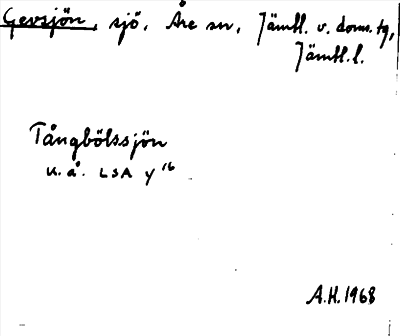 Gevsjön, sjö, Åre sn, Jämtl. v. doms. tg,
Jämtl. l.
Tångbölssjön
u. å. LSA Y 16
A.H. 1968